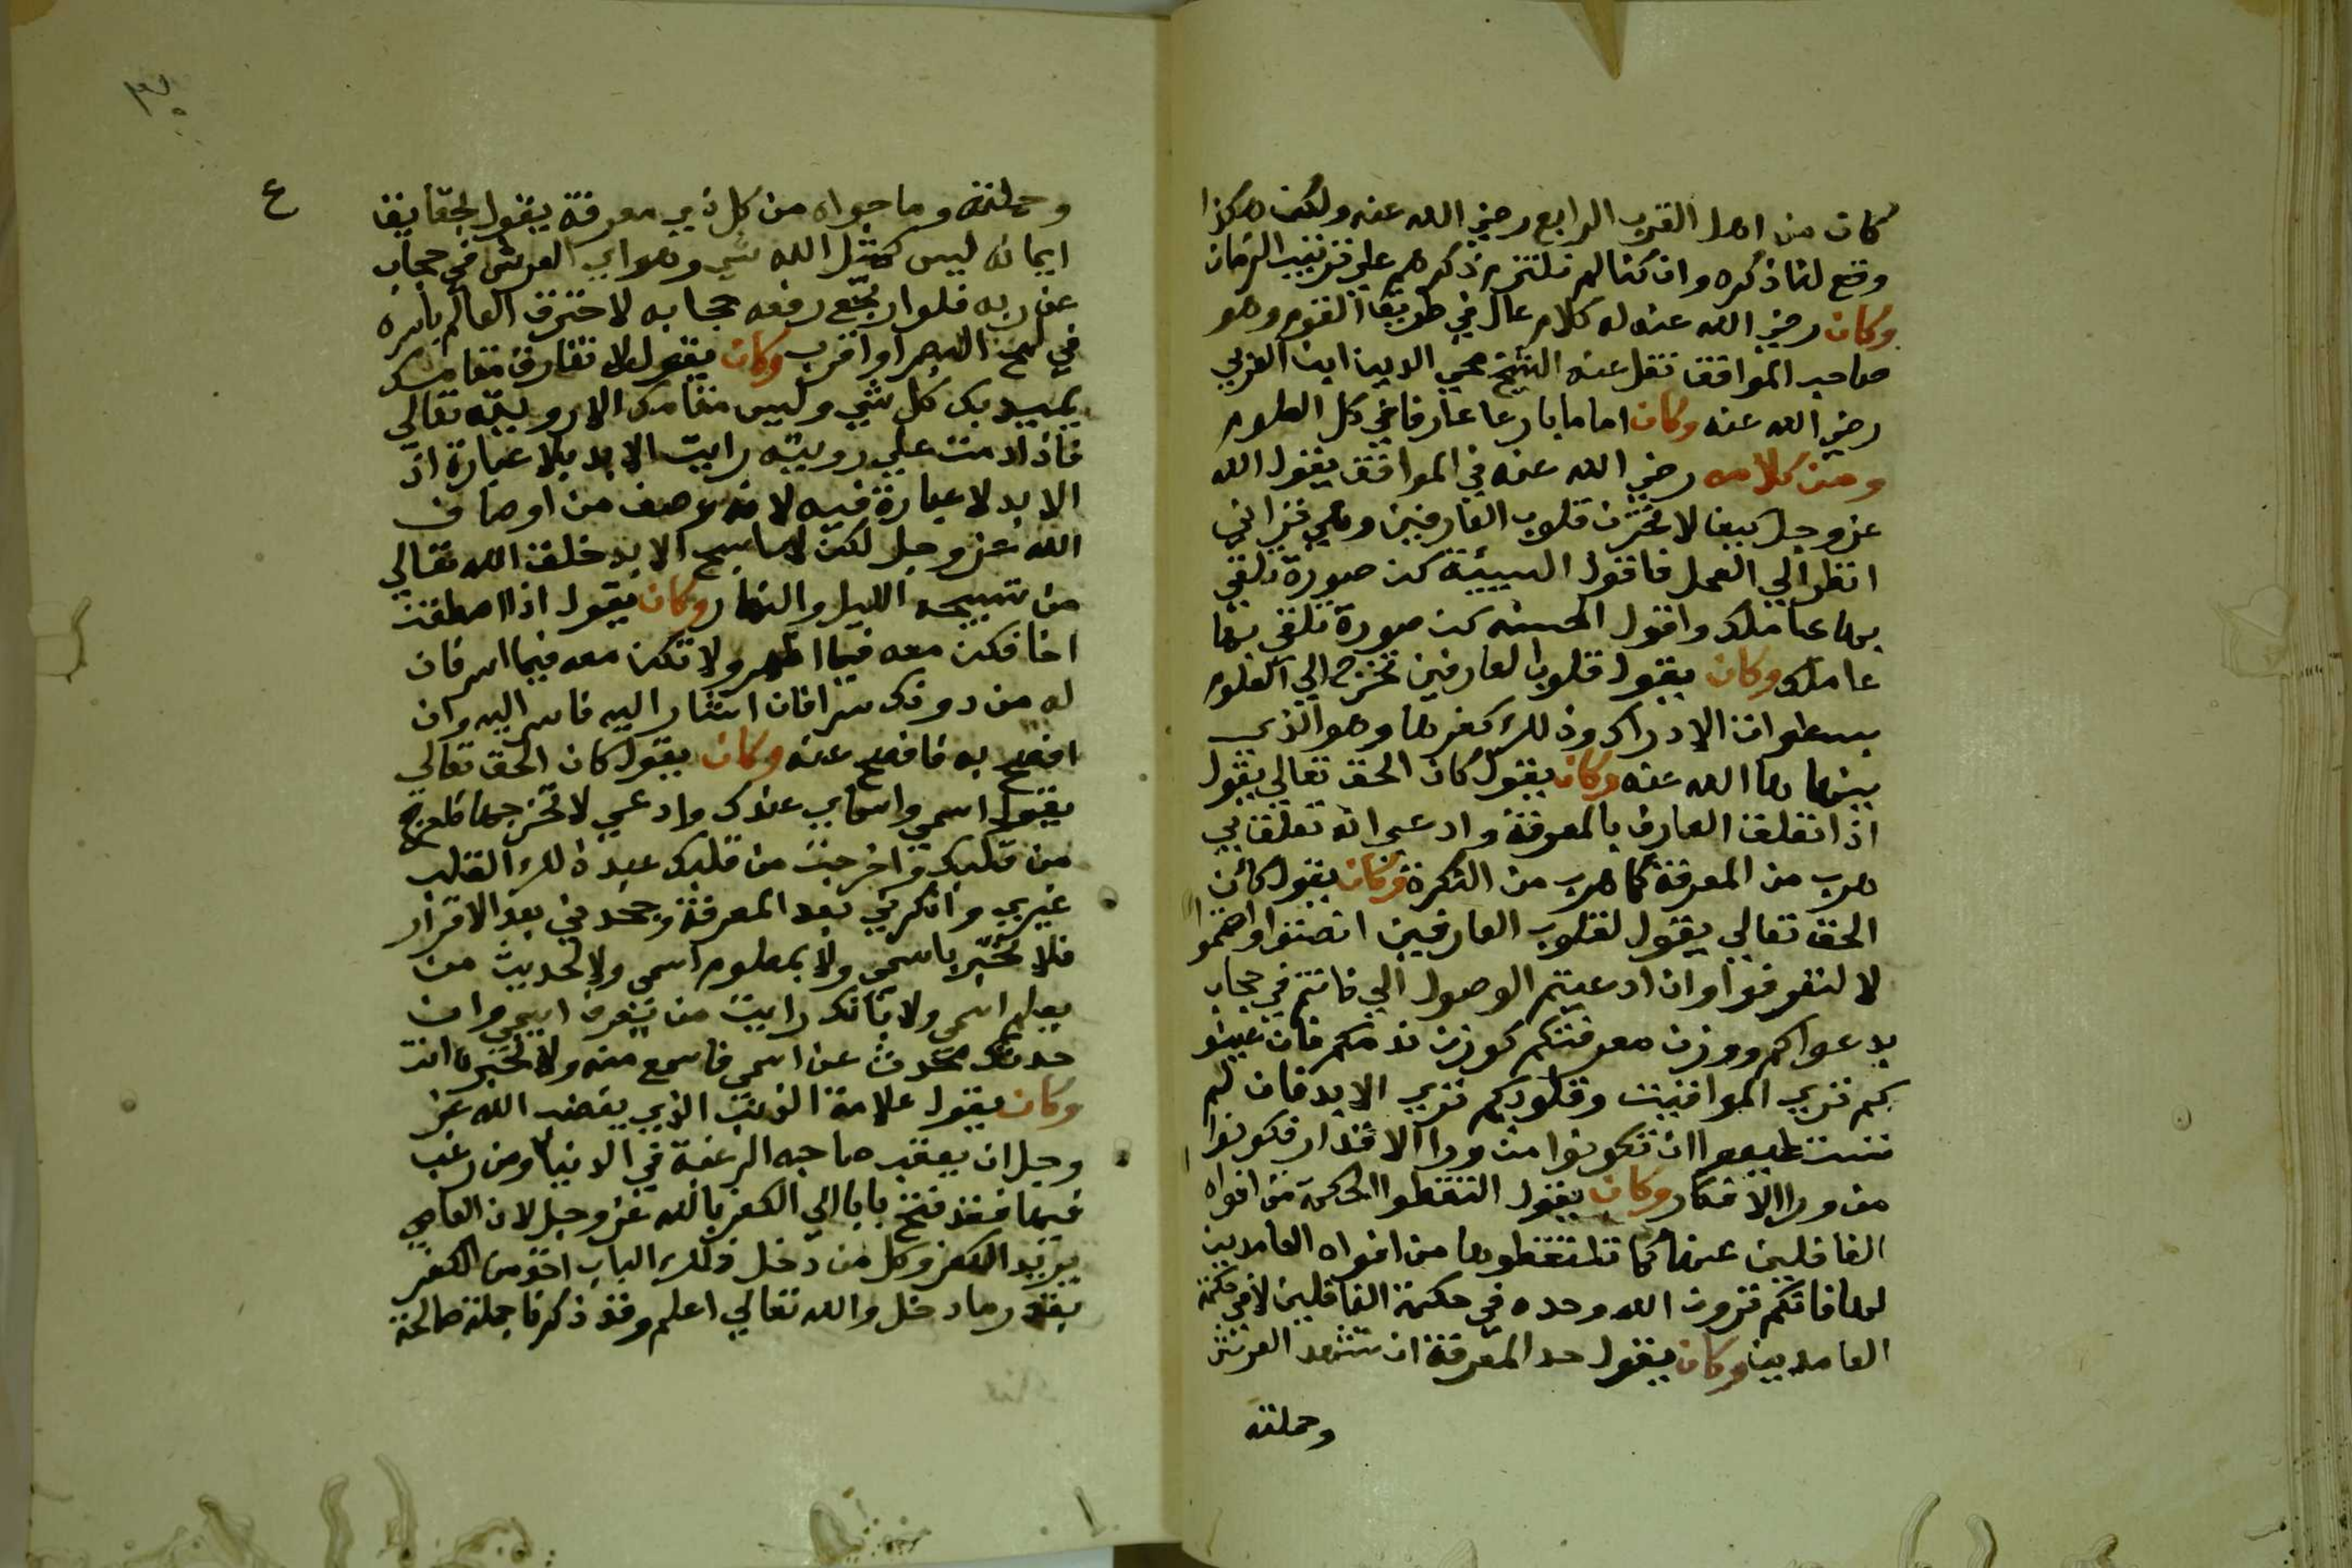 كان من اهل القرن الرابع رضي الله عنه ولكن هكذا
وقع لنا ذكره وان كنا لم نلتزم ذكرهم علي ترتيب الزمان
وكان رضي الله عنه له كلام عال في طريق القوم وهو
صاحب المواقف نقل عنه الشيخ محي الدين ابن العربي
رضي الله عنه وكان اماما بارعا عارفا في كل العلوم
ومن كلامه رضي الله عنه في المواقف يقول الله
عز وجل كيف لا تحزن قلوب العارفين وهي تراني
انظر الي العمل فاقول السيئة كن صورة تلقي
بها عاملك واقول الحسنه كن صورة تلقي بها
عاملك وكان يقول قلوب العارفين تخرج الي العلوم
بسطوات الادراك وذلك كفرها وهو الذي
ينهاها الله عنه وكان يقول كان الحق تعالي يقول
اذا تعلق العارف بالمعرفة وادعي انه تعلق بي
هرب من المعرفة كما هرب من النكرة وكان يقول كان
الحق تعالي يقول لقلوب العارفين انصتوا واصمتوا
لا لتعرفوا وان ادعيتم الوصول الي فانتم في حجاب
بدعواكم ووزن معرفتكم كوزن ندمكم فان عيو
نكم تري المواقيت وقلوبكم تري الابد فان لم
تستطيعوا ان تكونوا من ورا الاقدار فكونوا
من ورا الافكار وكان يقول التقطوا الحكمة من افواه
الغافلين عنها كما تلتقطوها من افواه العامدين
لها فانكم ترون الله وحده في حكمة الغافلين لا في حكمة
العامدين وكان يقول حد المعرفة ان تشهد العرش
وحملته
ع
وحملته وما حواه من كل ذي معرفة يقول بحقايق
ايمانه ليس كمثل الله شي وهو اي العرش في حجاب
عن ربه فلو ارتفع رفعه حجابه لاحترق العالم باسره
في لمح البصر او اقرب وكان يقول لا تفارق مقامك
يميد بك كل شي وليس مقامك الا رويته تعالي
فاذا دمت علي رويته رايت الابد بلا عبارة اذ
الابد لا عبارة فيه لانه وصف من اوصاف
الله عز وجل لكن لما سبح الابد خلق الله تعالي
من تسبيحه الليل والنهار وكان يقول اذا اصطفيت
اخا فكن معه فيما اظهر ولا تكن معه فيما اسر فان
له من دونك سرا فان اشار اليه فاسر اليه وان
افصح به فافصح عنه وكان يقول كان الحق تعالي
يقول اسمي واسماي عندك وادعي لا تخرجها فاخرج
من قلبك واخرجت من قلبك عبد ذلك القلب
غيري وانكرني بعد المعرفة وجحدني بعد الاقرار
فلا تخبر باسمي ولا بمعلوم اسمي ولا تحديث من
يعلم اسمي ولا بانك رايت من يعرف اسمي وان
حدثك محدث عن اسمي فاسمع منه ولا تخبره انت
وكان يقول علامة الذنب الذي يغضب الله عز
وجل ان يعقب صاحبه الرغبة في الدنيا ومن رغب
فيها فقد فتح بابا الي الكفر بالله عز وجل لان المعاصي
بريد الكفر وكل من دخل ذلك الباب اخذ من الكفر
بقدر ما دخل والله تعالي اعلم وقد ذكرنا جملة صالحة